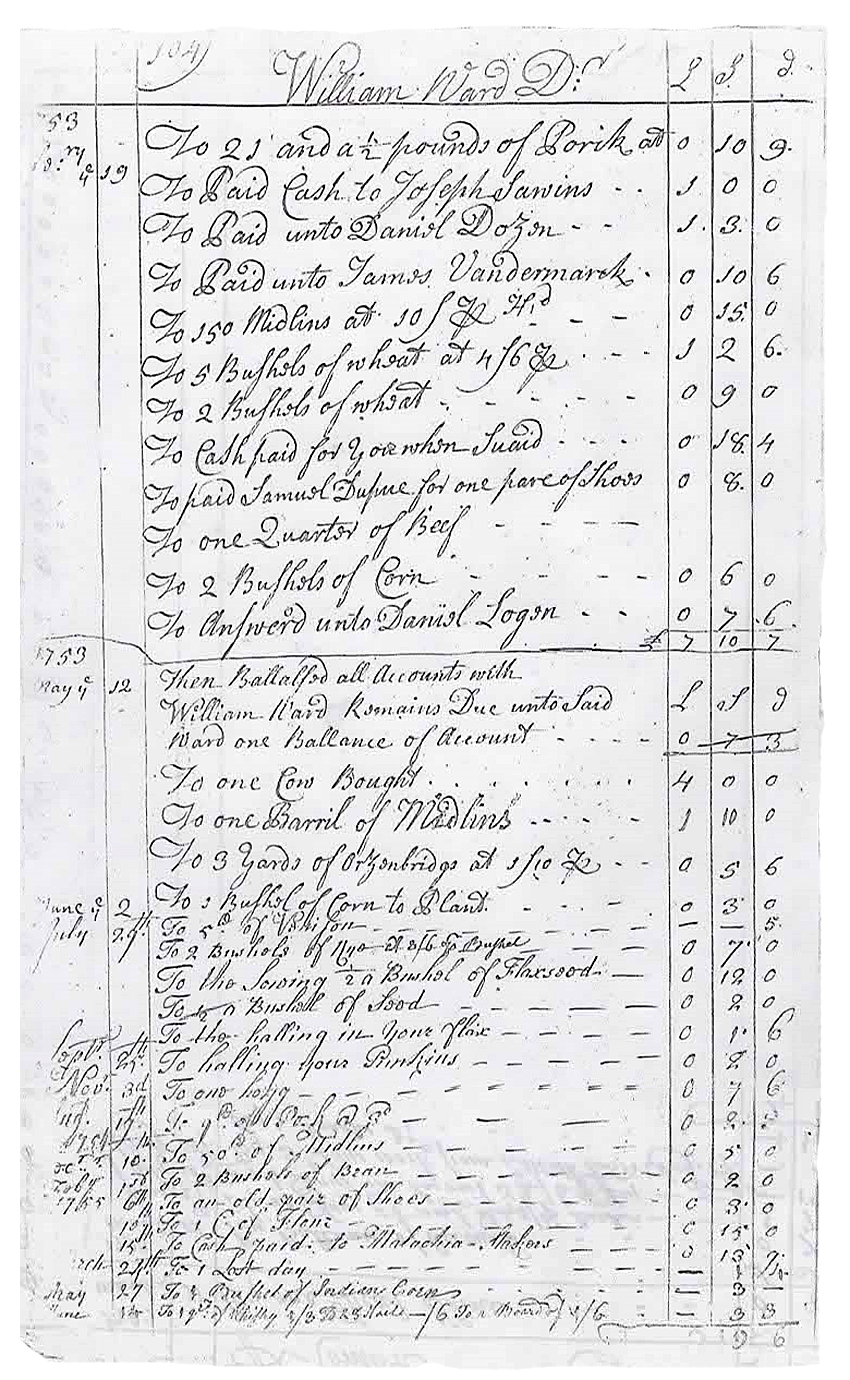 104)
William Ward Dr £ S d
53
To 21 and a ½ pounds of Porik at 0 10 9
19 To Paid Cash to Joseph Sawins - - 1 0 0
To Paid unto Daniel Dozen - - 1 3 0
To Paid unto James Vandermarck - 0 10 6
To 150 Midlins at 10/ - - - 0 15 0
To 5 Bushels of wheat at 4/6 - - - 1 2 6
To 2 Bushels of wheat - - - - - 0 9 0
To Cash paid for you when Suaid - - - 0 18 4
To paid Samuel Dupue for one pare of Shoes 0 8 0
To one Quarter of Beef - - - -
To 2 Bushels of Corn - - - - 0 6 0
To Answerd unto Daniel Logen - - 0 7 6
£ 7 10 7
1753
May ye 12 Then Ballalsed all Accounts with
William Ward Remains Due unto Said £ S d
Ward one Ballance of Account - - - - 0 7 3
To one Cow Bought - - - - 4 0 0
To one Barril of Midlins - - - - 1 10 0
To 3 Yards of Orzenbridgs at 1/10 - - 0 5 6
June ye 2 To 1 Bushel of Corn to Plant - - - 0 3 0
July 29th To 5 lb of Venison - - - - 5
To 2 Bushels of Rye at 3/6 Bushel 0 7 0
To the Sowing ½ a Bushel of Flaxseed - 0 12 0
To ½ a Bushel of Seed - - - - 0 2 0
To the halling in Your flax - - - - 0 1 6
Sept. To halling your Punkins - - - - 0 2 0
Nov. 3d To one hogg - - - - 0 7 6
To 9 lb of Pork - - - 0 2
10 To 50 lb of Midlins 0 5 0
To 2 Bushels of Bran - - - 0 2 0
1755 6th To an old pair of Shoes - - - 0 3 0
10th To 1 C of Flour - - - - 0 15 0
15 To Cash paid to Malachia - - - 0 13
To 1 Last day - - - - 1
May 27 To 1 Bushel of Indian Corn - - 3 -
June To 1 qt of Whisky 2/3 To 28 Nails - /6 To a Board 3 3
9 6